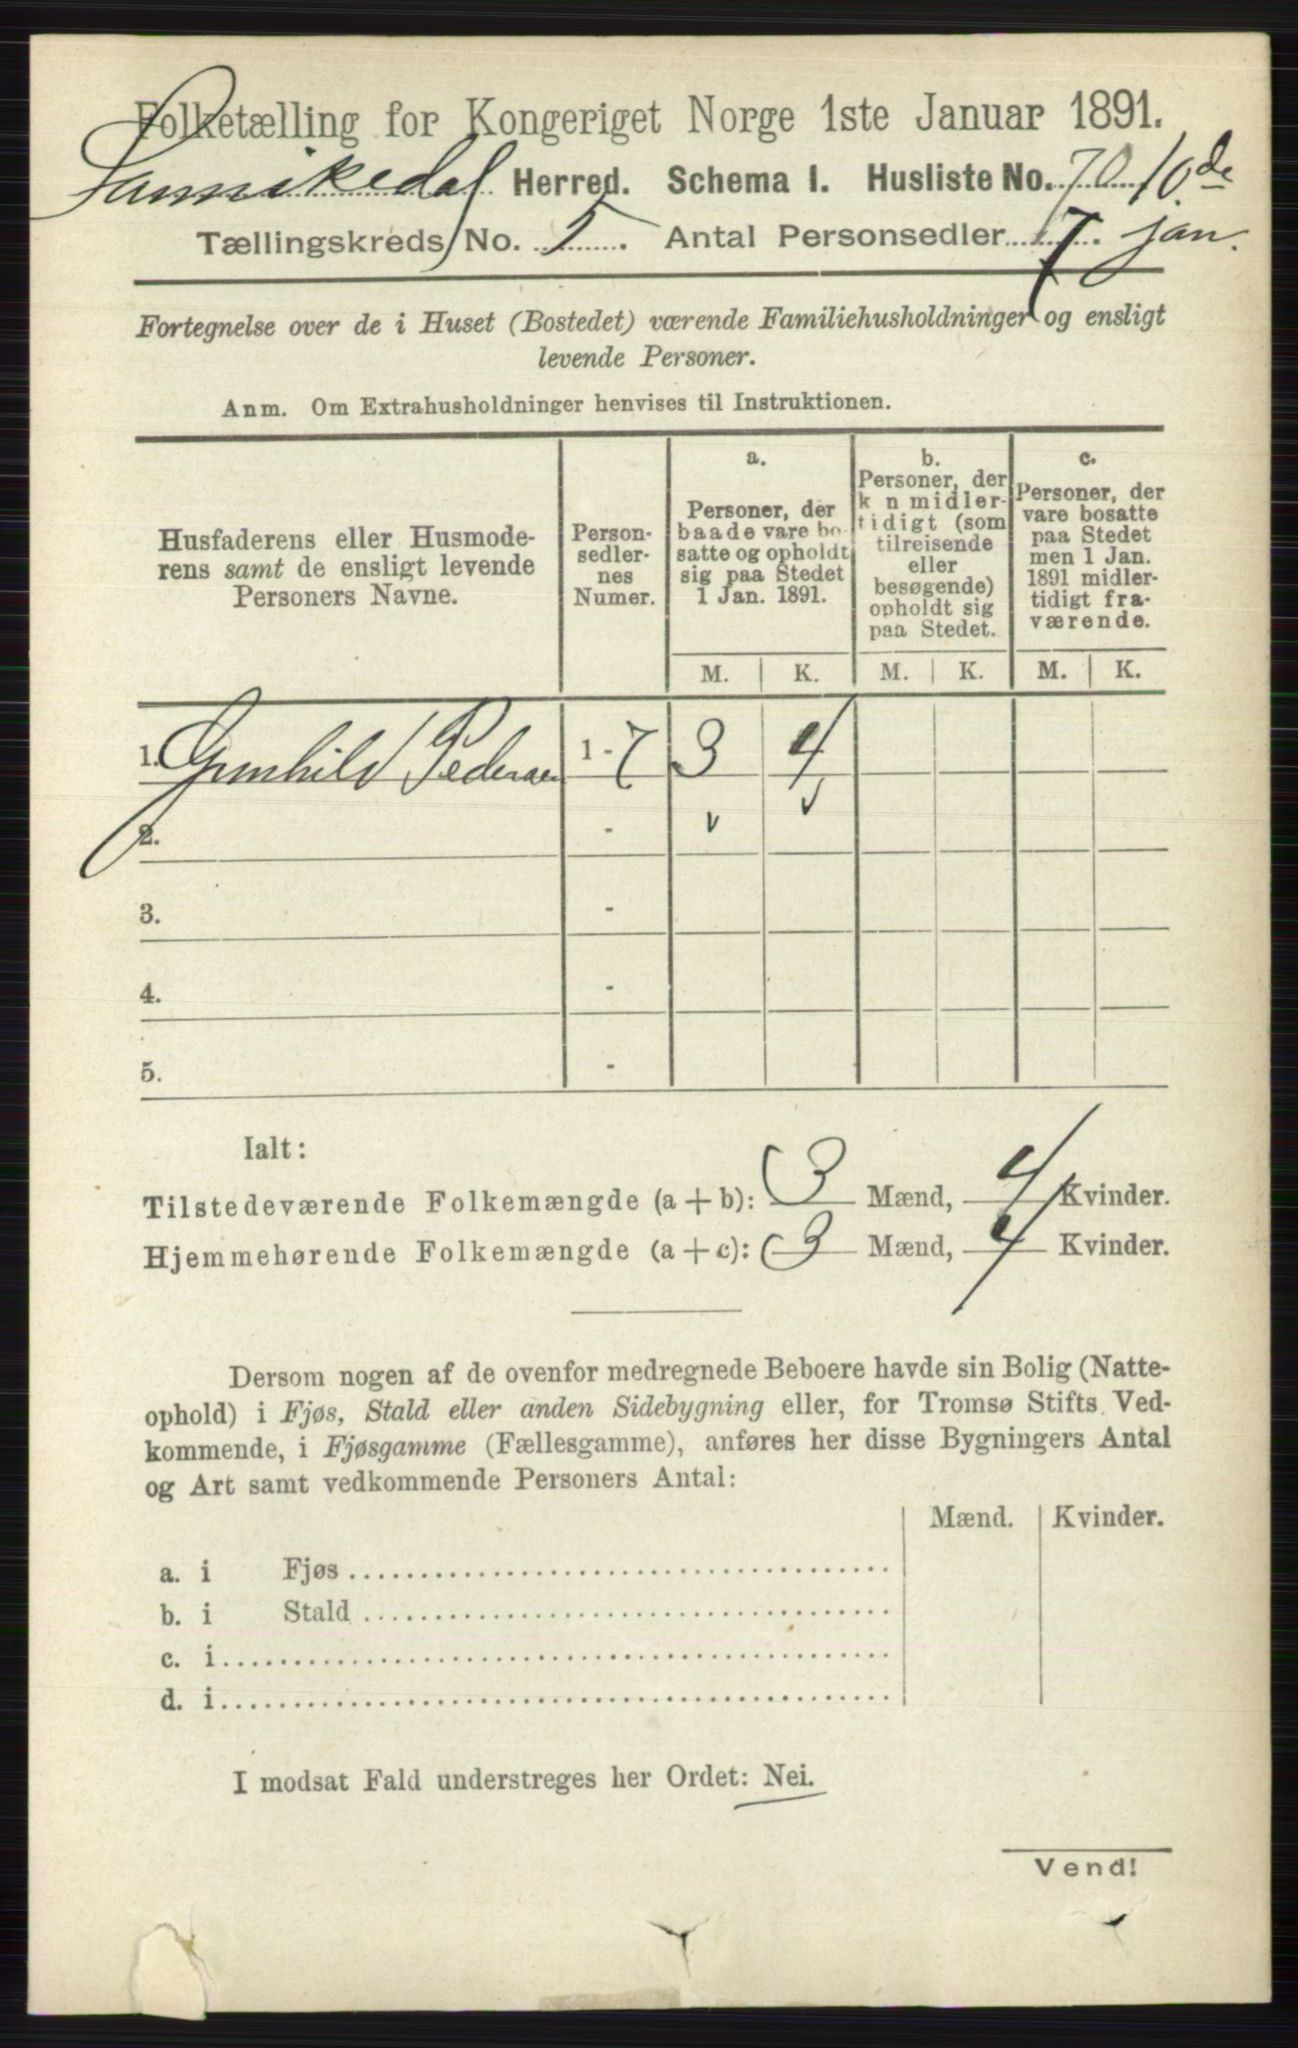 Folketælling for Kongeriget Norge 1ste Januar 1891.
Sannikedal Herred. Schema I. Husliste No. 70 10de
Tællingskreds No. 5. Antal Personsedler 7. jan.
Fortegnelse over de i Huset (Bostedet) værende Familiehusholdninger og ensligt
levende Personer.
Anm. Om Extrahusholdninger henvises til Instruktionen.
Husfaderens eller Husmode-
rens samt de ensligt levende
Personers Navne.
Person-
sedler-
nes
Numer.
a.
Personer, der
baade vare bo-
satte og opholdt
sig paa Stedet
1 Jan. 1891.
b.
Personer, der
k n midler-
tidigt (som
tilreisende
eller
besøgende)
opholdt sig
paa Stedet.
c.
Personer, der
vare bosatte
paa Stedet
men 1 Jan.
1891 midler-
tidigt fra-
værende.
M. K. M. K. M. K.
1. Gunhild Pedersen 1 - 7 3 4
2. -
3. -
4. -
5. -
Ialt:
Tilstedeværende Folkemængde (a + b): 3 Mænd, 4 Kvinder.
Hjemmehørende Folkemængde (a + c): 3 Mænd, 4 Kvinder.
Dersom nogen af de ovenfor medregnede Beboere havde sin Bolig (Natte-
ophold) i Fjøs, Stald eller anden Sidebygning eller, for Tromsø Stifts Ved-
kommende, i Fjøsgamme (Fællesgamme), anføres her disse Bygningers Antal
og Art samt vedkommende Personers Antal:
Mænd. Kvinder.
a. i Fjøs
b. i Stald
c. i
d. i
I modsat Fald understreges her Ordet: Nei.
Vend!